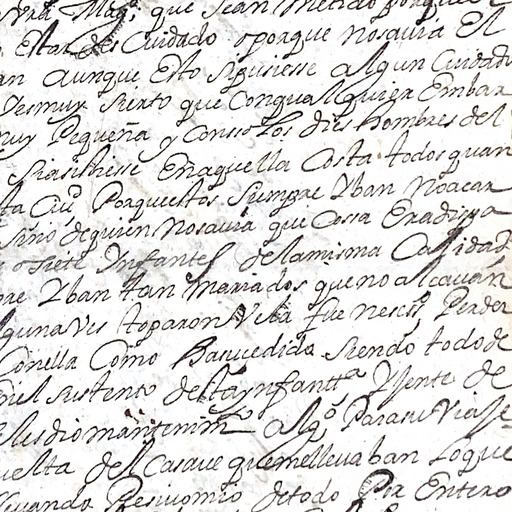 Vra Magd; que sean Metido porque
Estar des Cuidado o porque nosavia El
an aunque Esto siguiesse algun Cuidado
Vesmuy sierto que Conqualquier Embar
muy Pequeña y Conso Los dies hombres del
siasistiese Enaquella Costa todos quan
ta Ciud Porque estos siempre Yban
señor dequien nosavia que Cossa Era
o siete Ynfantes delamisma Calidad
pre Yban tan Mariados queno alcavan
lguna Ves toparon Vela fue neses° Perder
Conella Como Hasusedido siendo todo de
el sustento desta Ynfantta Y Jente de
les dio mantenim° algo Parasu Viaje
uelta del Casaue quemelleva ban Loque
llevando detodo Por Entero